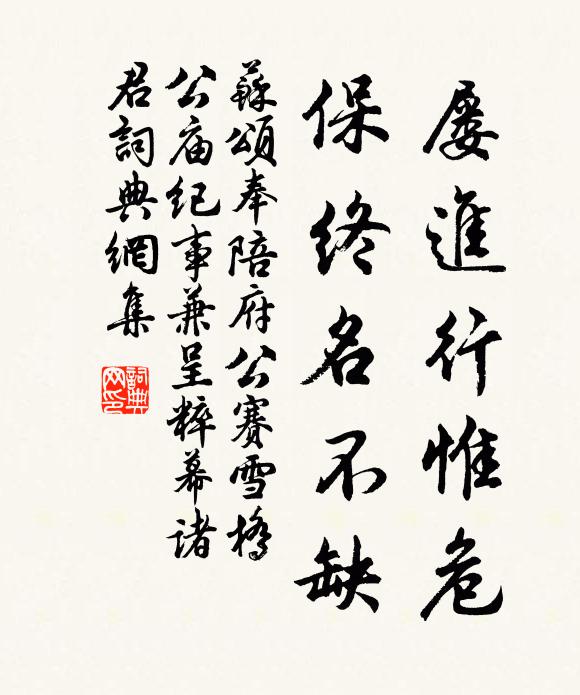 屡進行惟危
保終名不缺
蘇頌奉陪府公賽雪橋
公庙紀事兼呈粹幕諸
君詞典網集
詞典
网印